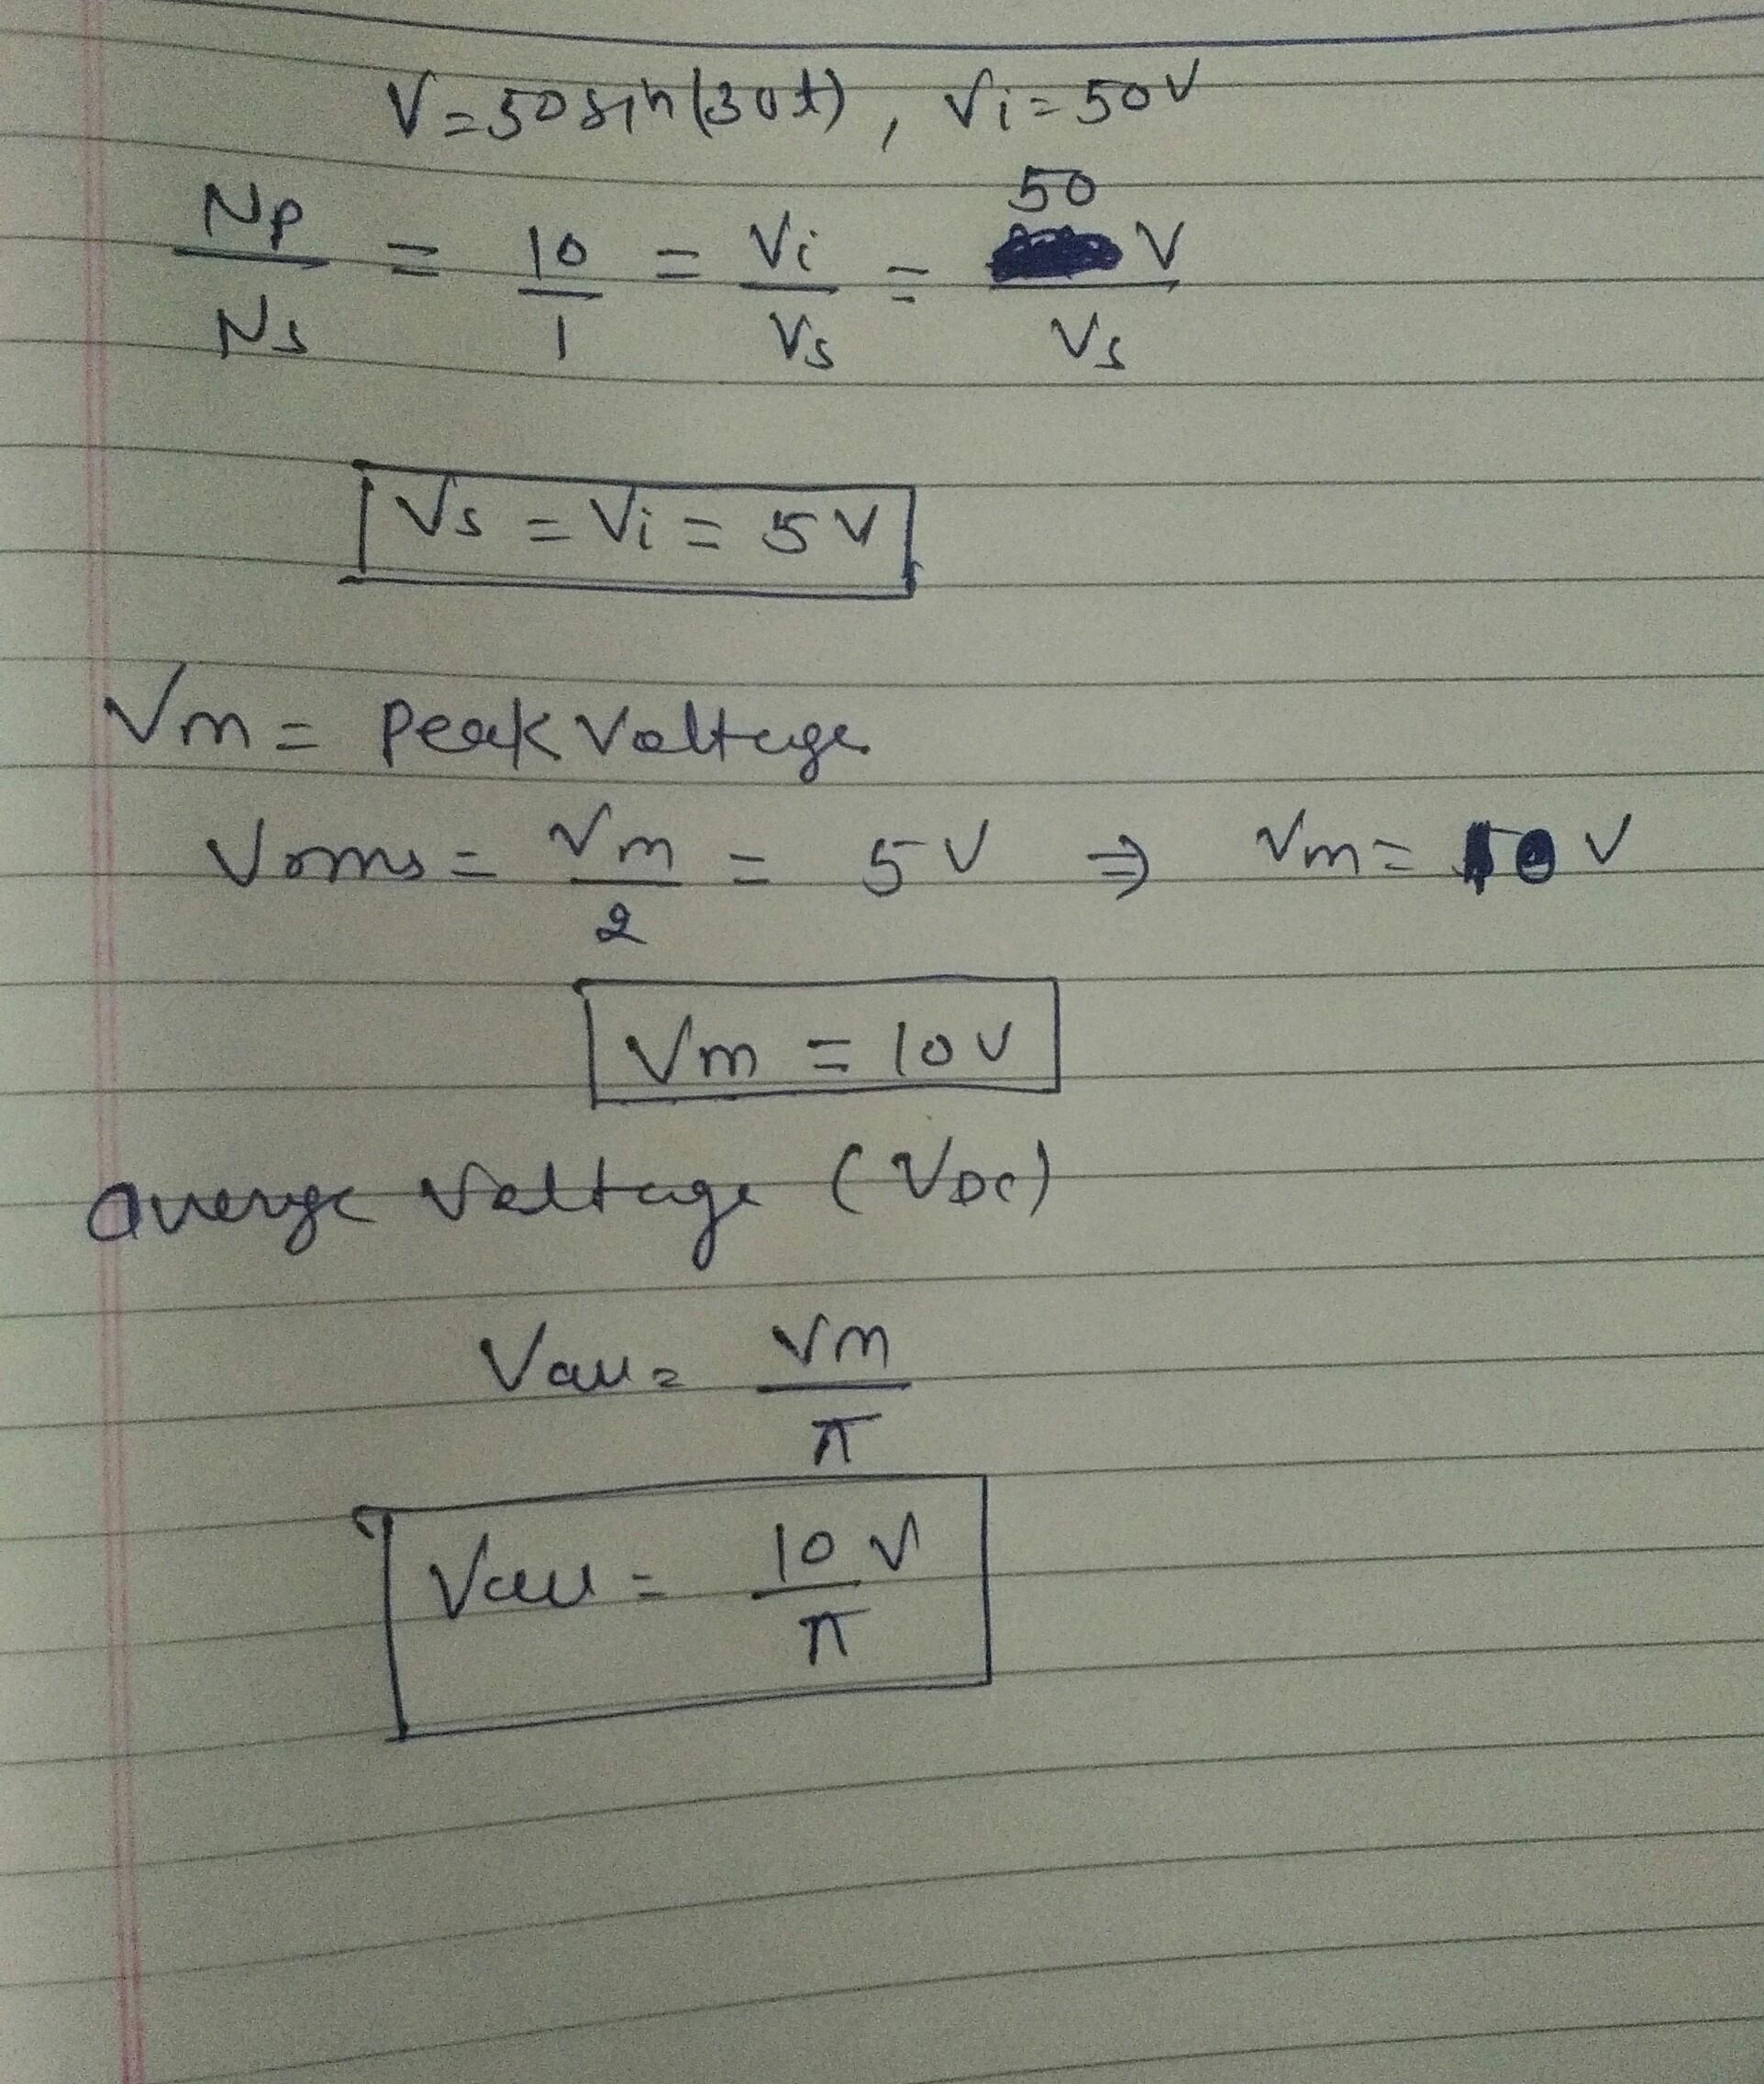 V=50sin(30t), Vi=50V
Np/Ns = 10/1 = Vi/Vs = 50V/Vs
Vs = Vi = 5V
Vm = Peak Voltage
Vrms = Vm/2 = 5V ⇒ Vm = 10V
Vm = 10V
Average Voltage (VDC)
Vav = Vm/π
Vav = 10V/π